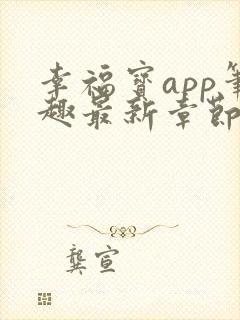 幸福宝app笔
趣最新章节
龚宣